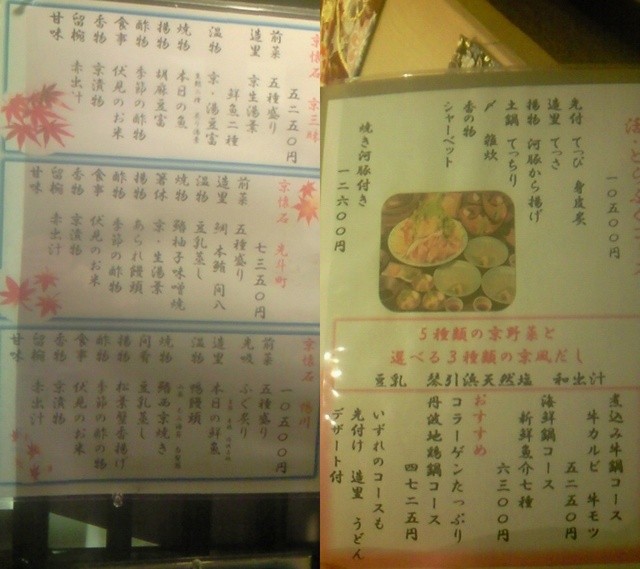 京懐石 京三昧
五二五〇円
前菜 五種盛り
造里 鮮魚二種
京生湯葉
温物 京・湯豆富
焼物 本日の魚
揚物 胡麻豆富
酢物 季節の酢物
食事 伏見のお米
香物 京漬物
留椀 赤出汁
甘味
京懐石 先斗町
七三五〇円
前菜 五種盛り
造里 鯛 本鮪 間八
温物 豆乳蒸し
焼物 鰆柚子味噌焼
箸休 京・生湯葉
揚物 あられ饅頭
酢物 季節の酢物
食事 伏見のお米
香物 京漬物
留椀 赤出汁
甘味
京懐石 鴨川
一〇五〇〇円
前菜 五種盛り
先吸 ふぐ炙り
造里 本日の鮮魚
温物 鴨饅頭
焼物 鰆西京焼き
同肴 豆乳蒸し
揚物 松葉蟹香揚げ
酢物 季節の酢の物
食事 伏見のお米
香物 京漬物
留椀 赤出汁
甘味
一〇五〇〇円
先付 てっぴ 身皮炙
造里 てっさ
揚物 河豚から揚げ
土鍋 てっちり
〆 雑炊
香の物
シャーベット
焼き河豚付き
一二六〇〇円
5種類の京野菜と
選べる3種類の京風だし
豆乳 琴引浜天然塩 和出汁
煮込み牛鍋コース
牛カルビ 牛モツ
五二五〇円
海鮮鍋コース
新鮮魚介七種
六三〇〇円
おすすめ
コラーゲンたっぷり
丹波地鶏鍋コース
四七二五円
いずれのコースも
先付け 造里 うどん
デザート付